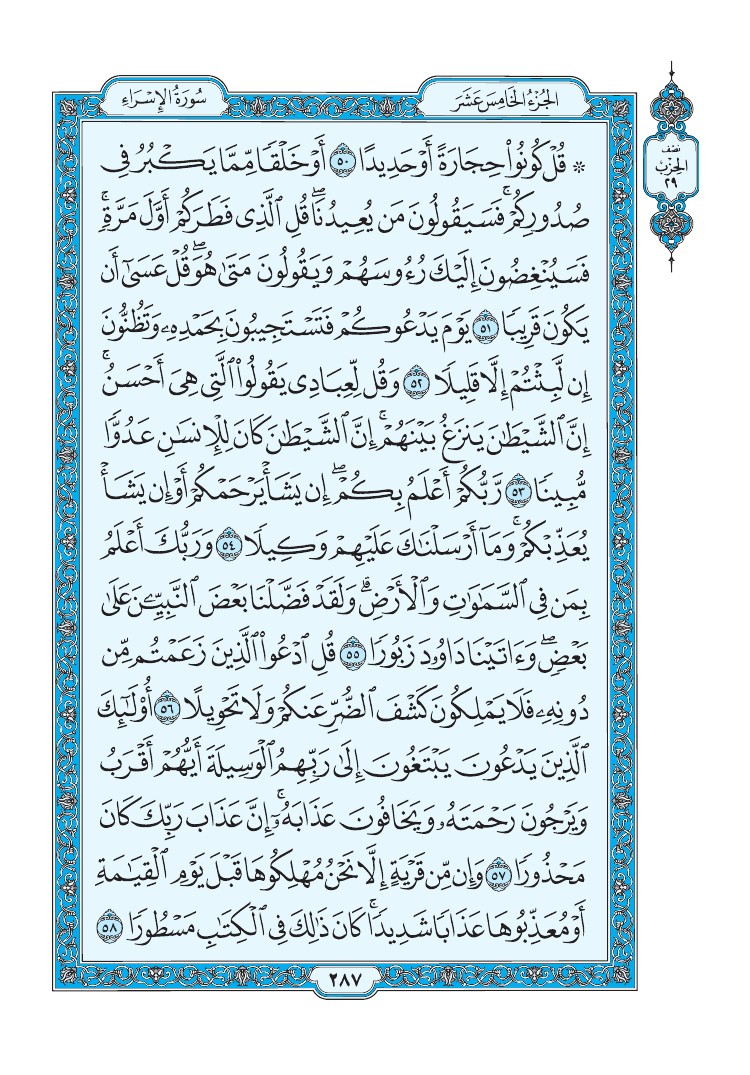 سُورَةُ الإِسْرَاءِ
الجُزْءُ الخَامِسَ عَشَرَ
نصف
الحِزْبُ
٢٩
۞ قُلْ كُونُوا۟ حِجَارَةً أَوْ حَدِيدًا ٥٠ أَوْ خَلْقًا مِّمَّا يَكْبُرُ فِى
صُدُورِكُمْ ۚ فَسَيَقُولُونَ مَن يُعِيدُنَا ۖ قُلِ ٱلَّذِى فَطَرَكُمْ أَوَّلَ مَرَّةٍ ۚ
فَسَيُنْغِضُونَ إِلَيْكَ رُءُوسَهُمْ وَيَقُولُونَ مَتَىٰ هُوَ ۖ قُلْ عَسَىٰٓ أَن
يَكُونَ قَرِيبًا ٥١ يَوْمَ يَدْعُوكُمْ فَتَسْتَجِيبُونَ بِحَمْدِهِۦ وَتَظُنُّونَ
إِن لَّبِثْتُمْ إِلَّا قَلِيلًا ٥٢ وَقُل لِّعِبَادِى يَقُولُوا۟ ٱلَّتِى هِىَ أَحْسَنُ ۚ
إِنَّ ٱلشَّيْطَٰنَ يَنزَغُ بَيْنَهُمْ ۚ إِنَّ ٱلشَّيْطَٰنَ كَانَ لِلْإِنسَٰنِ عَدُوًّا
مُّبِينًا ٥٣ رَّبُّكُمْ أَعْلَمُ بِكُمْ ۖ إِن يَشَأْ يَرْحَمْكُمْ أَوْ إِن يَشَأْ
يُعَذِّبْكُمْ ۚ وَمَآ أَرْسَلْنَٰكَ عَلَيْهِمْ وَكِيلًا ٥٤ وَرَبُّكَ أَعْلَمُ
بِمَن فِى ٱلسَّمَٰوَٰتِ وَٱلْأَرْضِ ۗ وَلَقَدْ فَضَّلْنَا بَعْضَ ٱلنَّبِيِّۦنَ عَلَىٰ
بَعْضٍ ۖ وَءَاتَيْنَا دَاوُۥدَ زَبُورًا ٥٥ قُلِ ٱدْعُوا۟ ٱلَّذِينَ زَعَمْتُم مِّن
دُونِهِۦ فَلَا يَمْلِكُونَ كَشْفَ ٱلضُّرِّ عَنكُمْ وَلَا تَحْوِيلًا ٥٦ أُو۟لَٰٓئِكَ
ٱلَّذِينَ يَدْعُونَ يَبْتَغُونَ إِلَىٰ رَبِّهِمُ ٱلْوَسِيلَةَ أَيُّهُمْ أَقْرَبُ
وَيَرْجُونَ رَحْمَتَهُۥ وَيَخَافُونَ عَذَابَهُۥٓ ۚ إِنَّ عَذَابَ رَبِّكَ كَانَ
مَحْذُورًا ٥٧ وَإِن مِّن قَرْيَةٍ إِلَّا نَحْنُ مُهْلِكُوهَا قَبْلَ يَوْمِ ٱلْقِيَٰمَةِ
أَوْ مُعَذِّبُوهَا عَذَابًا شَدِيدًا ۚ كَانَ ذَٰلِكَ فِى ٱلْكِتَٰبِ مَسْطُورًا ٥٨
٢٨٧